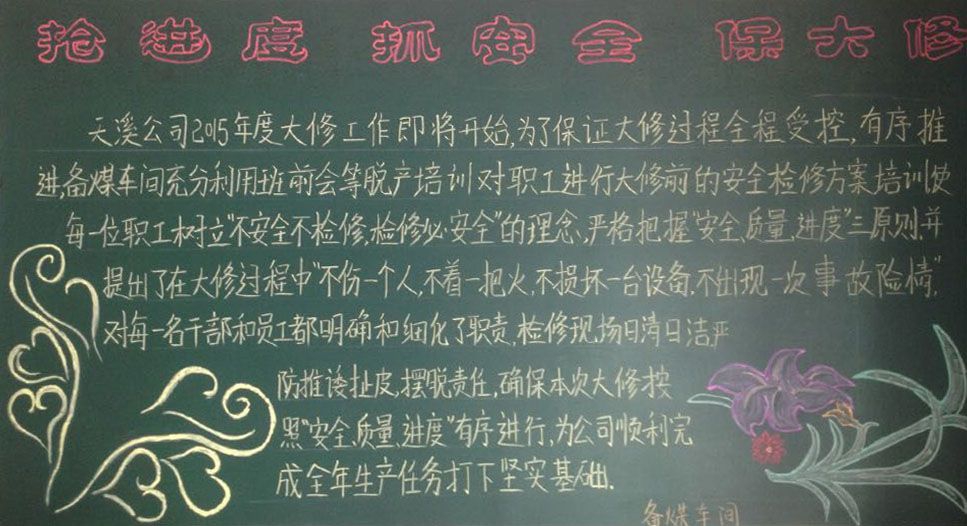 抢进度 抓安全 保大修
天溪公司2015年度大修工作即将开始,为了保证大修过程全程受控,有序推
进,备煤车间充分利用班前会等脱产培训对职工进行大修前的安全检修方案培训使
每一位职工树立"不安全不检修,检修必安全"的理念,严格把握"安全、质量、进度"三原则,并
提出了在大修过程中"不伤一个人,不着一把火,不损坏一台设备,不出现一次事故险情",
对每一名干部和员工都明确和细化了职责,检修现场日清日洁严
防推诿扯皮,摆脱责任,确保本次大修按
照"安全、质量、进度"有序进行,为公司顺利完
成全年生产任务打下坚实基础.
备煤车间